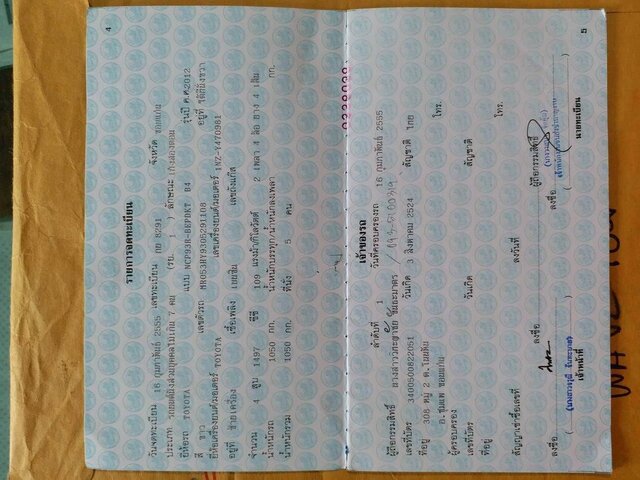 4
รายการจดทะเบียน
วันจดทะเบียน 16 กุมภาพันธ์ 2555 เลขทะเบียน กย 8291 จังหวัด ขอนแก่น
ประเภท รถยนต์นั่งส่วนบุคคลไม่เกิน 7 คน (รย. 1 ) ลักษณะ เก๋งสองตอน
ยี่ห้อรถ TOYOTA แบบ NCP93R-BEPDKT B4 รุ่นปี ค.ศ.2012
สี ขาว เลขตัวรถ MR053HY9305291108 อยู่ที่
ยี่ห้อเครื่องยนต์/มอเตอร์ TOYOTA เลขเครื่องยนต์/มอเตอร์ 1NZ-Y470981
อยู่ที่ ซ้ายเครื่อง เชื้อเพลิง เบนซิน เลขถังแก๊ส
จำนวน 4 สูบ 1497 ซีซี 109 แรงม้า/กิโลวัตต์ 2 เพลา 4 ล้อ ยาง 4 เส้น
น้ำหนักรถ 1050 กก. น้ำหนักบรรทุก/น้ำหนักลงเพลา กก.
น้ำหนักรวม 1050 กก. ที่นั่ง 5 คน
5
เจ้าของรถ
ลำดับที่ 1 วันที่ครอบครองรถ 16 กุมภาพันธ์ 2555
ผู้ถือกรรมสิทธิ์ นางสาว
เลขที่บัตร 3400500822051 วันเกิด 3 สิงหาคม 2524 สัญชาติ ไทย
ที่อยู่ 308 หมู่ 2 ต.โนนหัน โทร.
อ.ชุมแพ ขอนแก่น
ผู้ครอบครอง
เลขที่บัตร วันเกิด สัญชาติ
ที่อยู่ โทร.
สัญญาเช่าซื้อเลขที่ ลงวันที่
ลงชื่อ ผู้ถือกรรมสิทธิ์
ลงชื่อ ลงชื่อ
เจ้าหน้าที่ นายทะเบียน